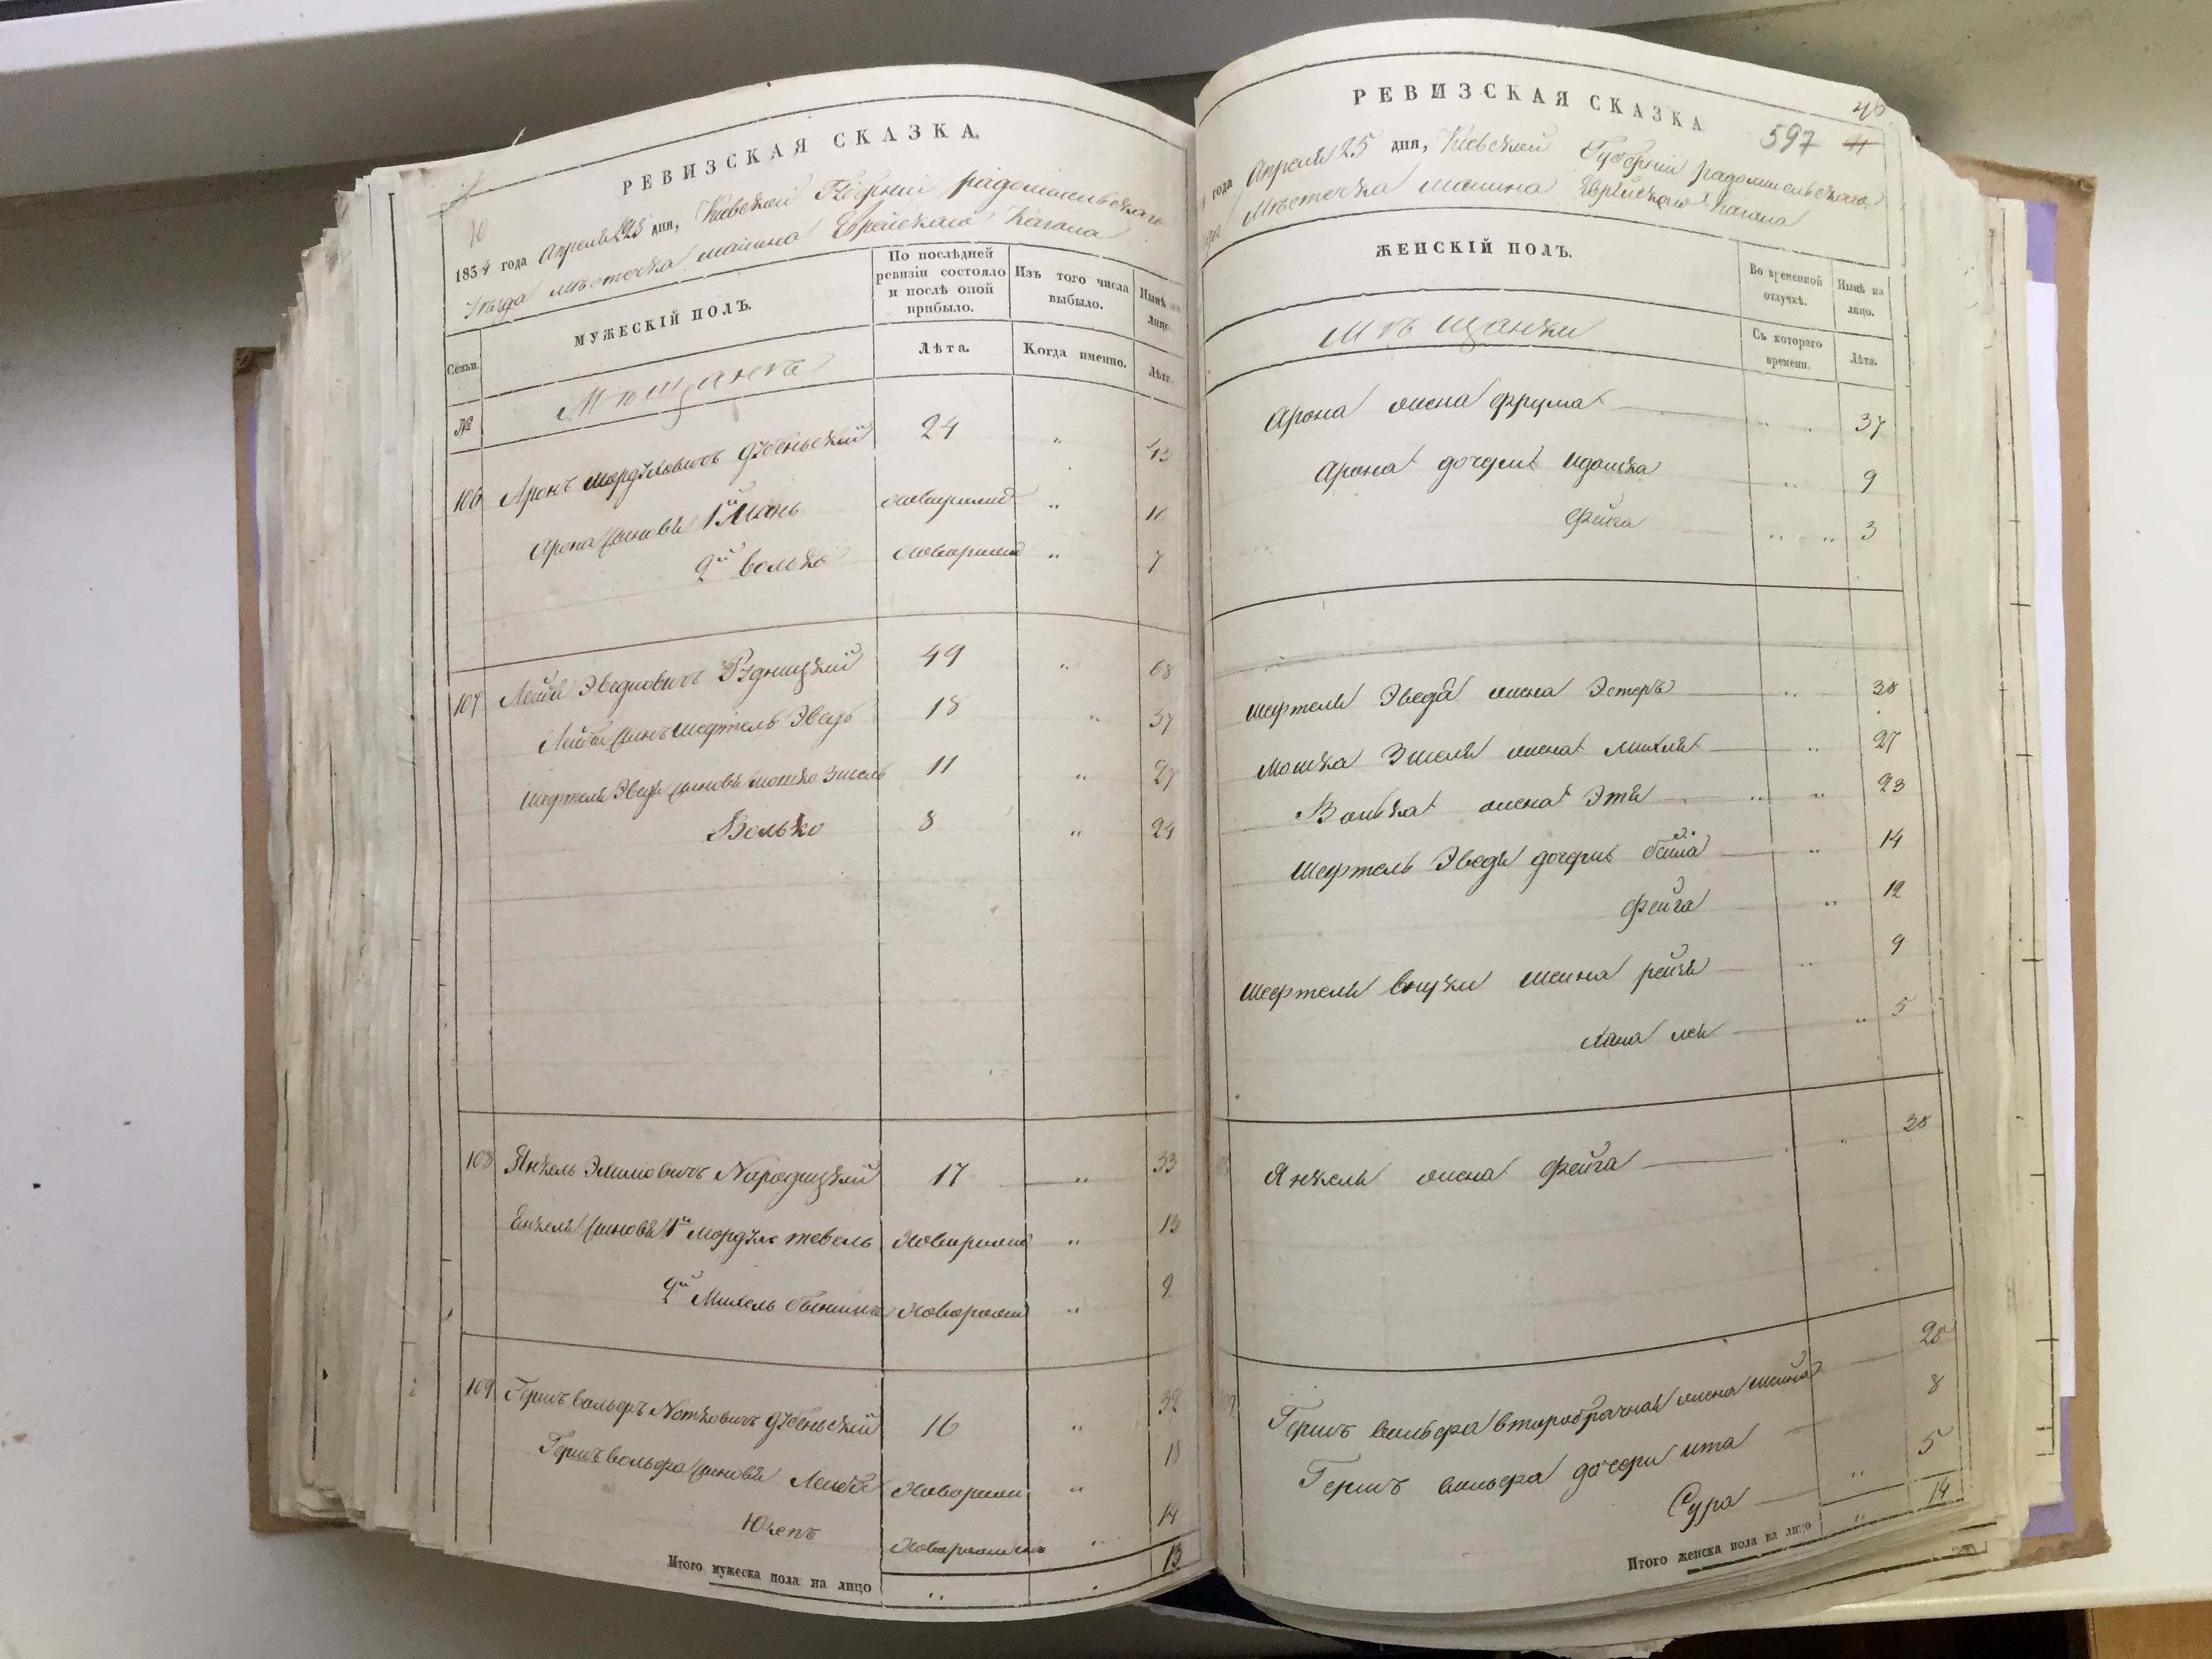 РЕВИЗСКАЯ СКАЗКА.
1834 года Апреля 25 дня, Киевской Губернии радомысльскаго
Уезда местечка малина Еврейскаго Кагала
Семьи.
МУЖЕСКІЙ ПОЛЪ.
По послѣдней ревизіи состояло и послѣ оной прибыло.
Изъ того числа выбыло.
Нынѣ на лицо.
№
Мѣщанѣ
Лѣта.
Когда именно.
Лѣта.
106 Аронъ Мордуховичъ Дубеньскій 24 " 43
Арона сыновья 1й новорожд " 16
2й Волько новорожд " 7
107 Лейба Эведиовичъ Рудницкій 49 " 68
Лейби сынъ Шефтель Эведь 18 " 37
Шефтеля Эведя сыновья Мошко Зисель 11 " 27
Волько 8 " 24
108 Янкель Хаимовичъ Народицкій 17 " 33
Енкеля сыновья 1й Мордко тевель новорожд " 13
2й Михель новорожд " 9
109 Гершъ вольфъ Нотковичъ Дубеньскій 16 " 32
Гершъ вольфа сыновья Лейба новорожд " 18
Юкепъ новорожд " 14
Итого мужеска пола на лицо " " 13
РЕВИЗСКАЯ СКАЗКА
40
597 41
года Апреля 25 дня, Киевской Губернии радомысльскаго
местечка малина Еврейскаго Кагала
ЖЕНСКІЙ ПОЛЪ.
Во временной отлучкѣ.
Нынѣ на лицо.
Мѣщанки
Съ котораго времени.
Лѣта.
Арона жена фрума " 37
Арона дочери Идаска " 9
Фейга " " 3
Шефтеля Эведя жена Эстеръ " 38
Мошка Зиселя жена Михля " 27
Волька жена Этя " " 23
Шефтель Эведя дочери бейла " 14
Фейга " 12
Шефтеля внуки шейна рейзя " 9
хана лея " 5
Янкеля жена Фейга " 38
Гершъ вольфа второбрачная жена шейна 28
Гершъ вольфа дочери ита 8
Сура " 5
Итого женска пола на лицо " 14